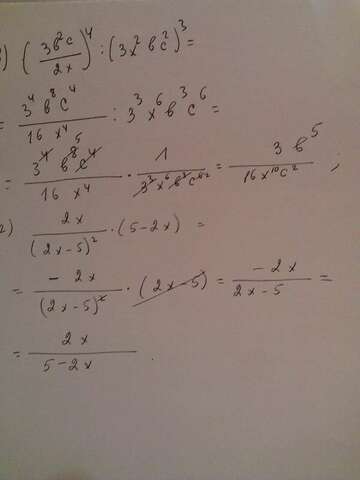 ) (3b²c/2x)⁴ : (3x²bc²)³ =
= 3⁴b⁸c⁴/16x⁴ : 3³x⁶b³c⁶ =
= 3⁴b⁸⁵c⁴/16x⁴ · 1/3³x⁶b³c⁶² = 3b⁵/16x¹⁰c² ;
2) 2x/(2x-5)² · (5-2x) =
= -2x/(2x-5)² · (2x-5) = -2x/2x-5 =
= 2x/5-2x .